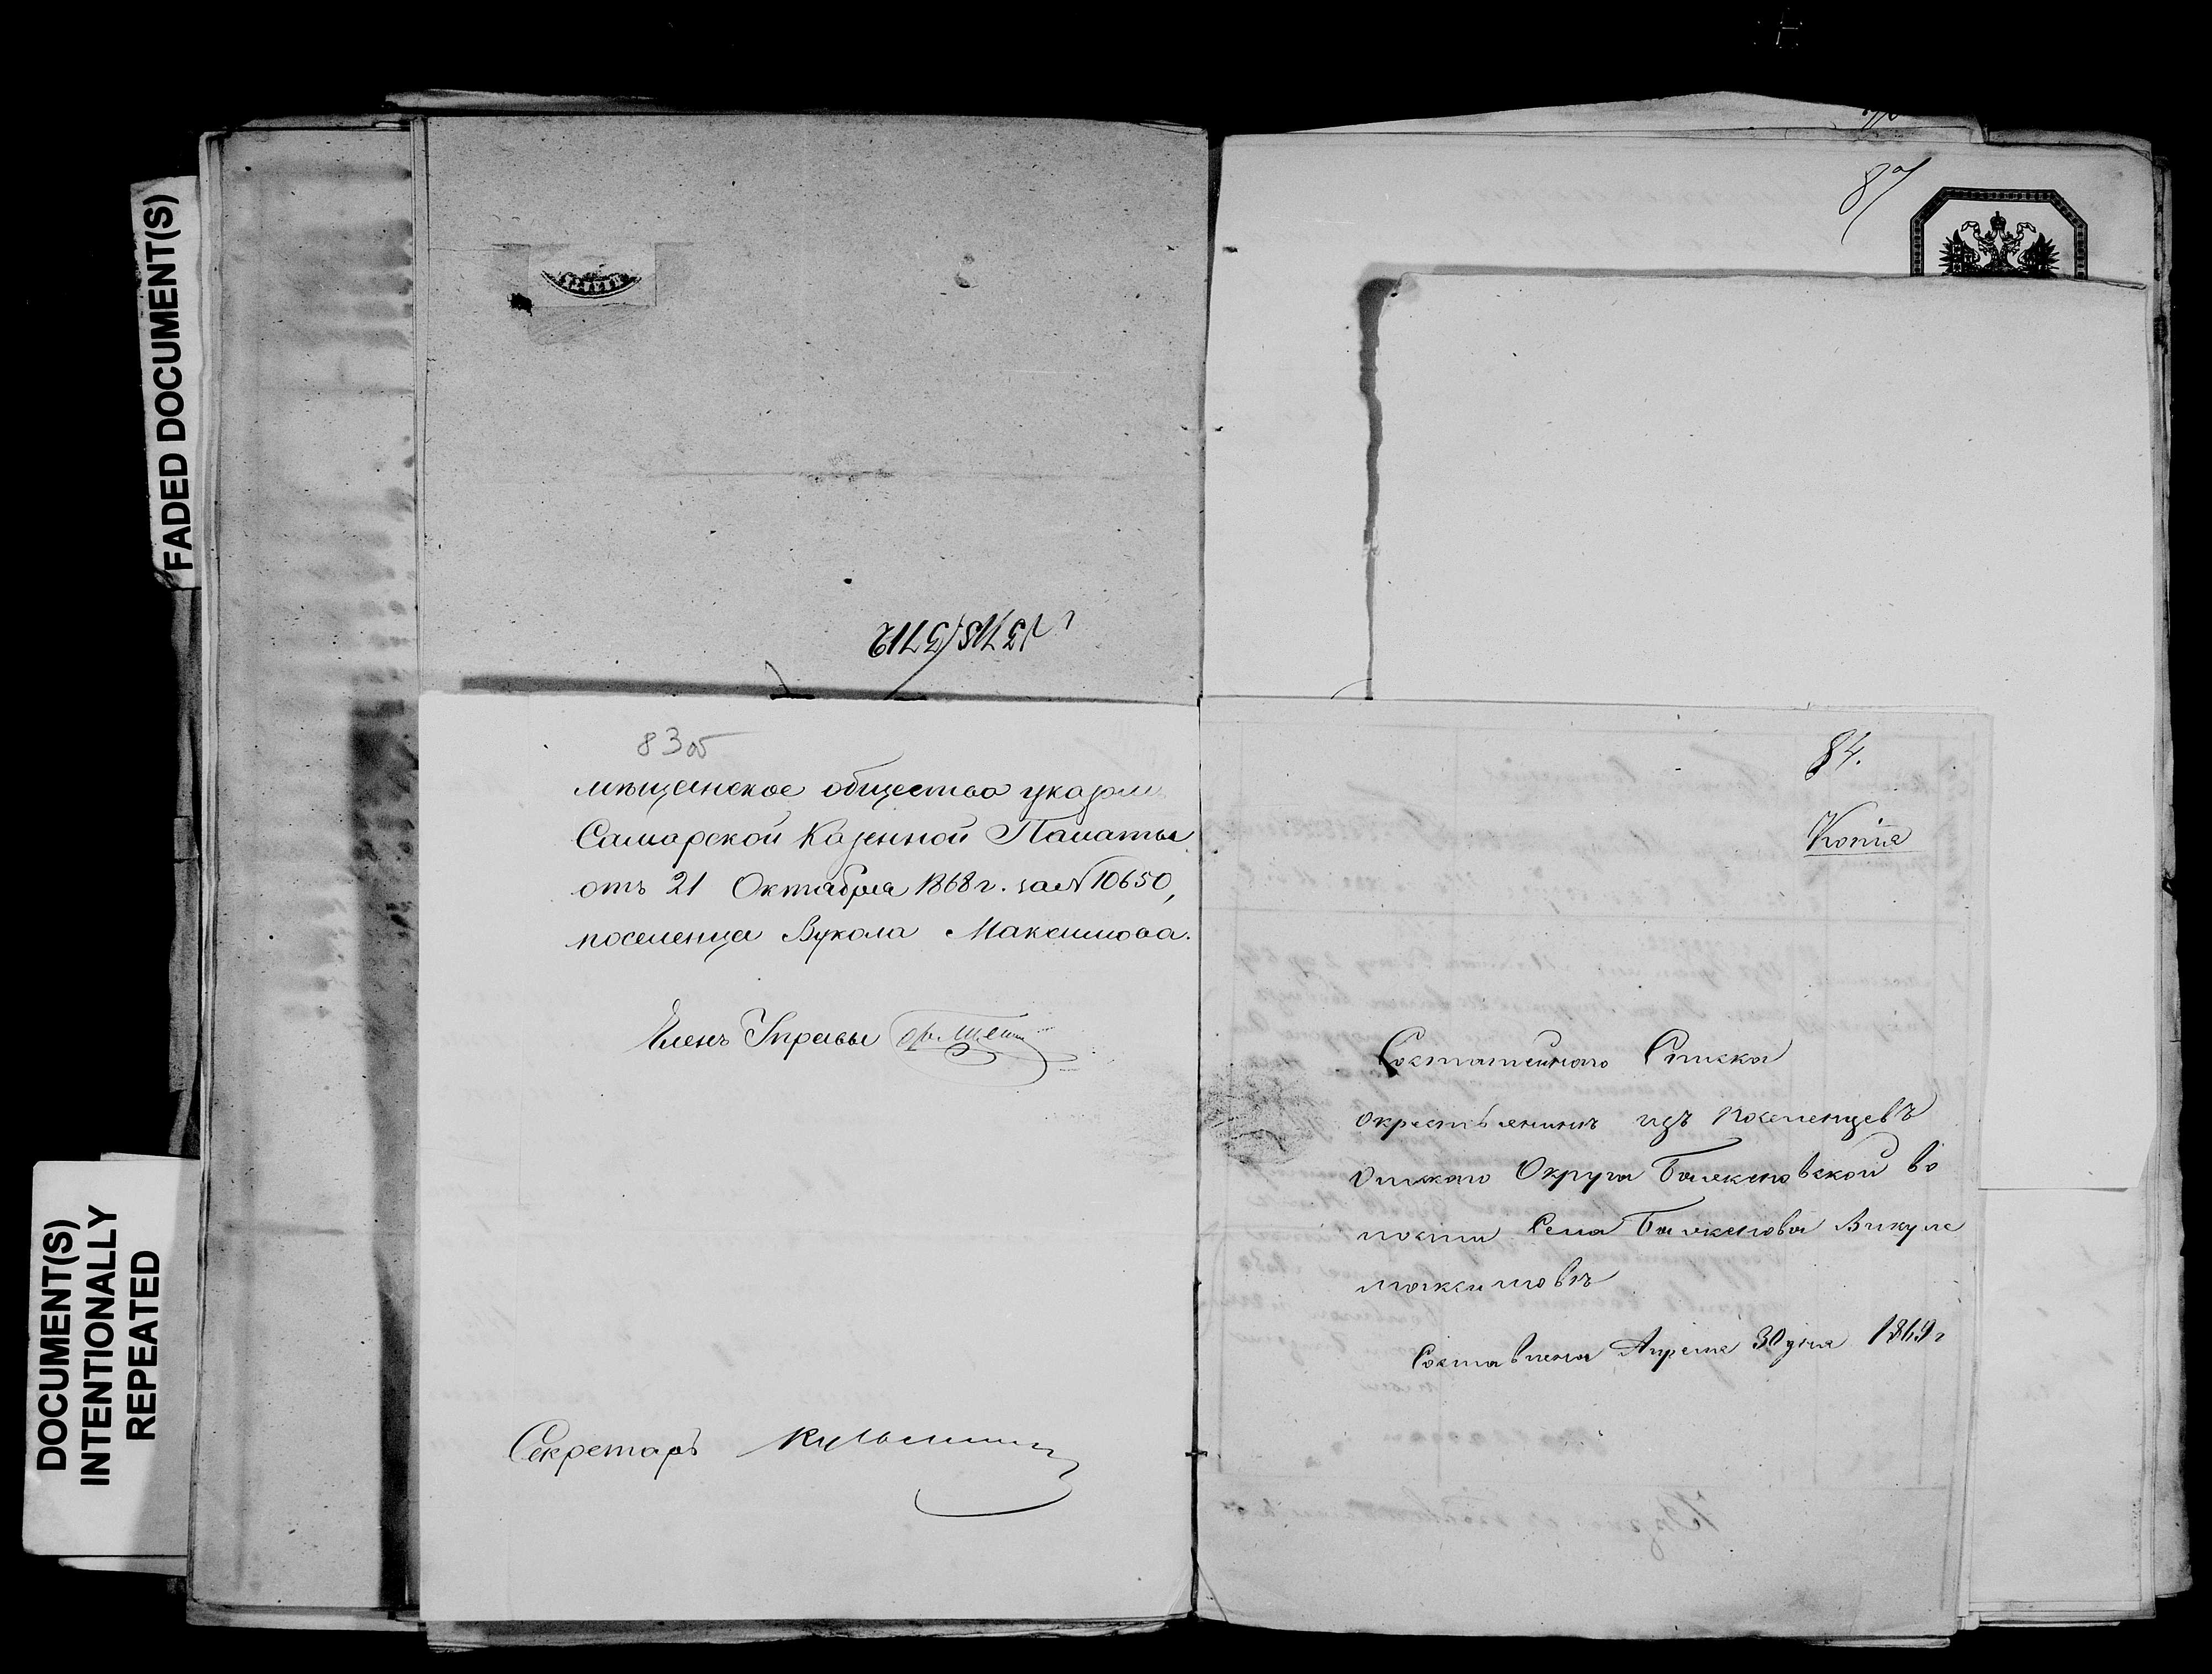 FADED DOCUMENT(S)
DOCUMENT(S)
INTENTIONALLY
REPEATED
83 об
мѣщанское общество указом
Самарской Казенной Палаты
отъ 21 Октября 1868 г. за № 10650,
поселенца Вукола Максимова.
Членъ Управы
Секретарь
87
84.
Копія
Статейнаго Списка
окрестьянинѣ изъ поселенцевъ
Округа во
лости Села Викуле
Максимовѣ
Составлена Апреля 30 дня 1869 г